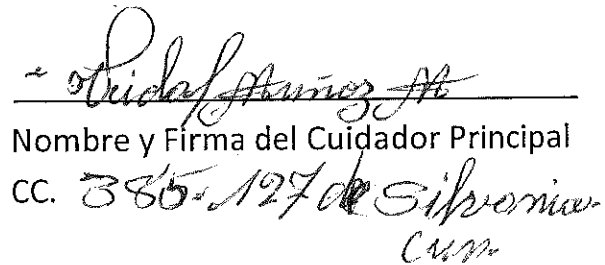 Vidal Muñoz M
Nombre y Firma del Cuidador Principal
CC. 385.127 de Silvania
Cun.